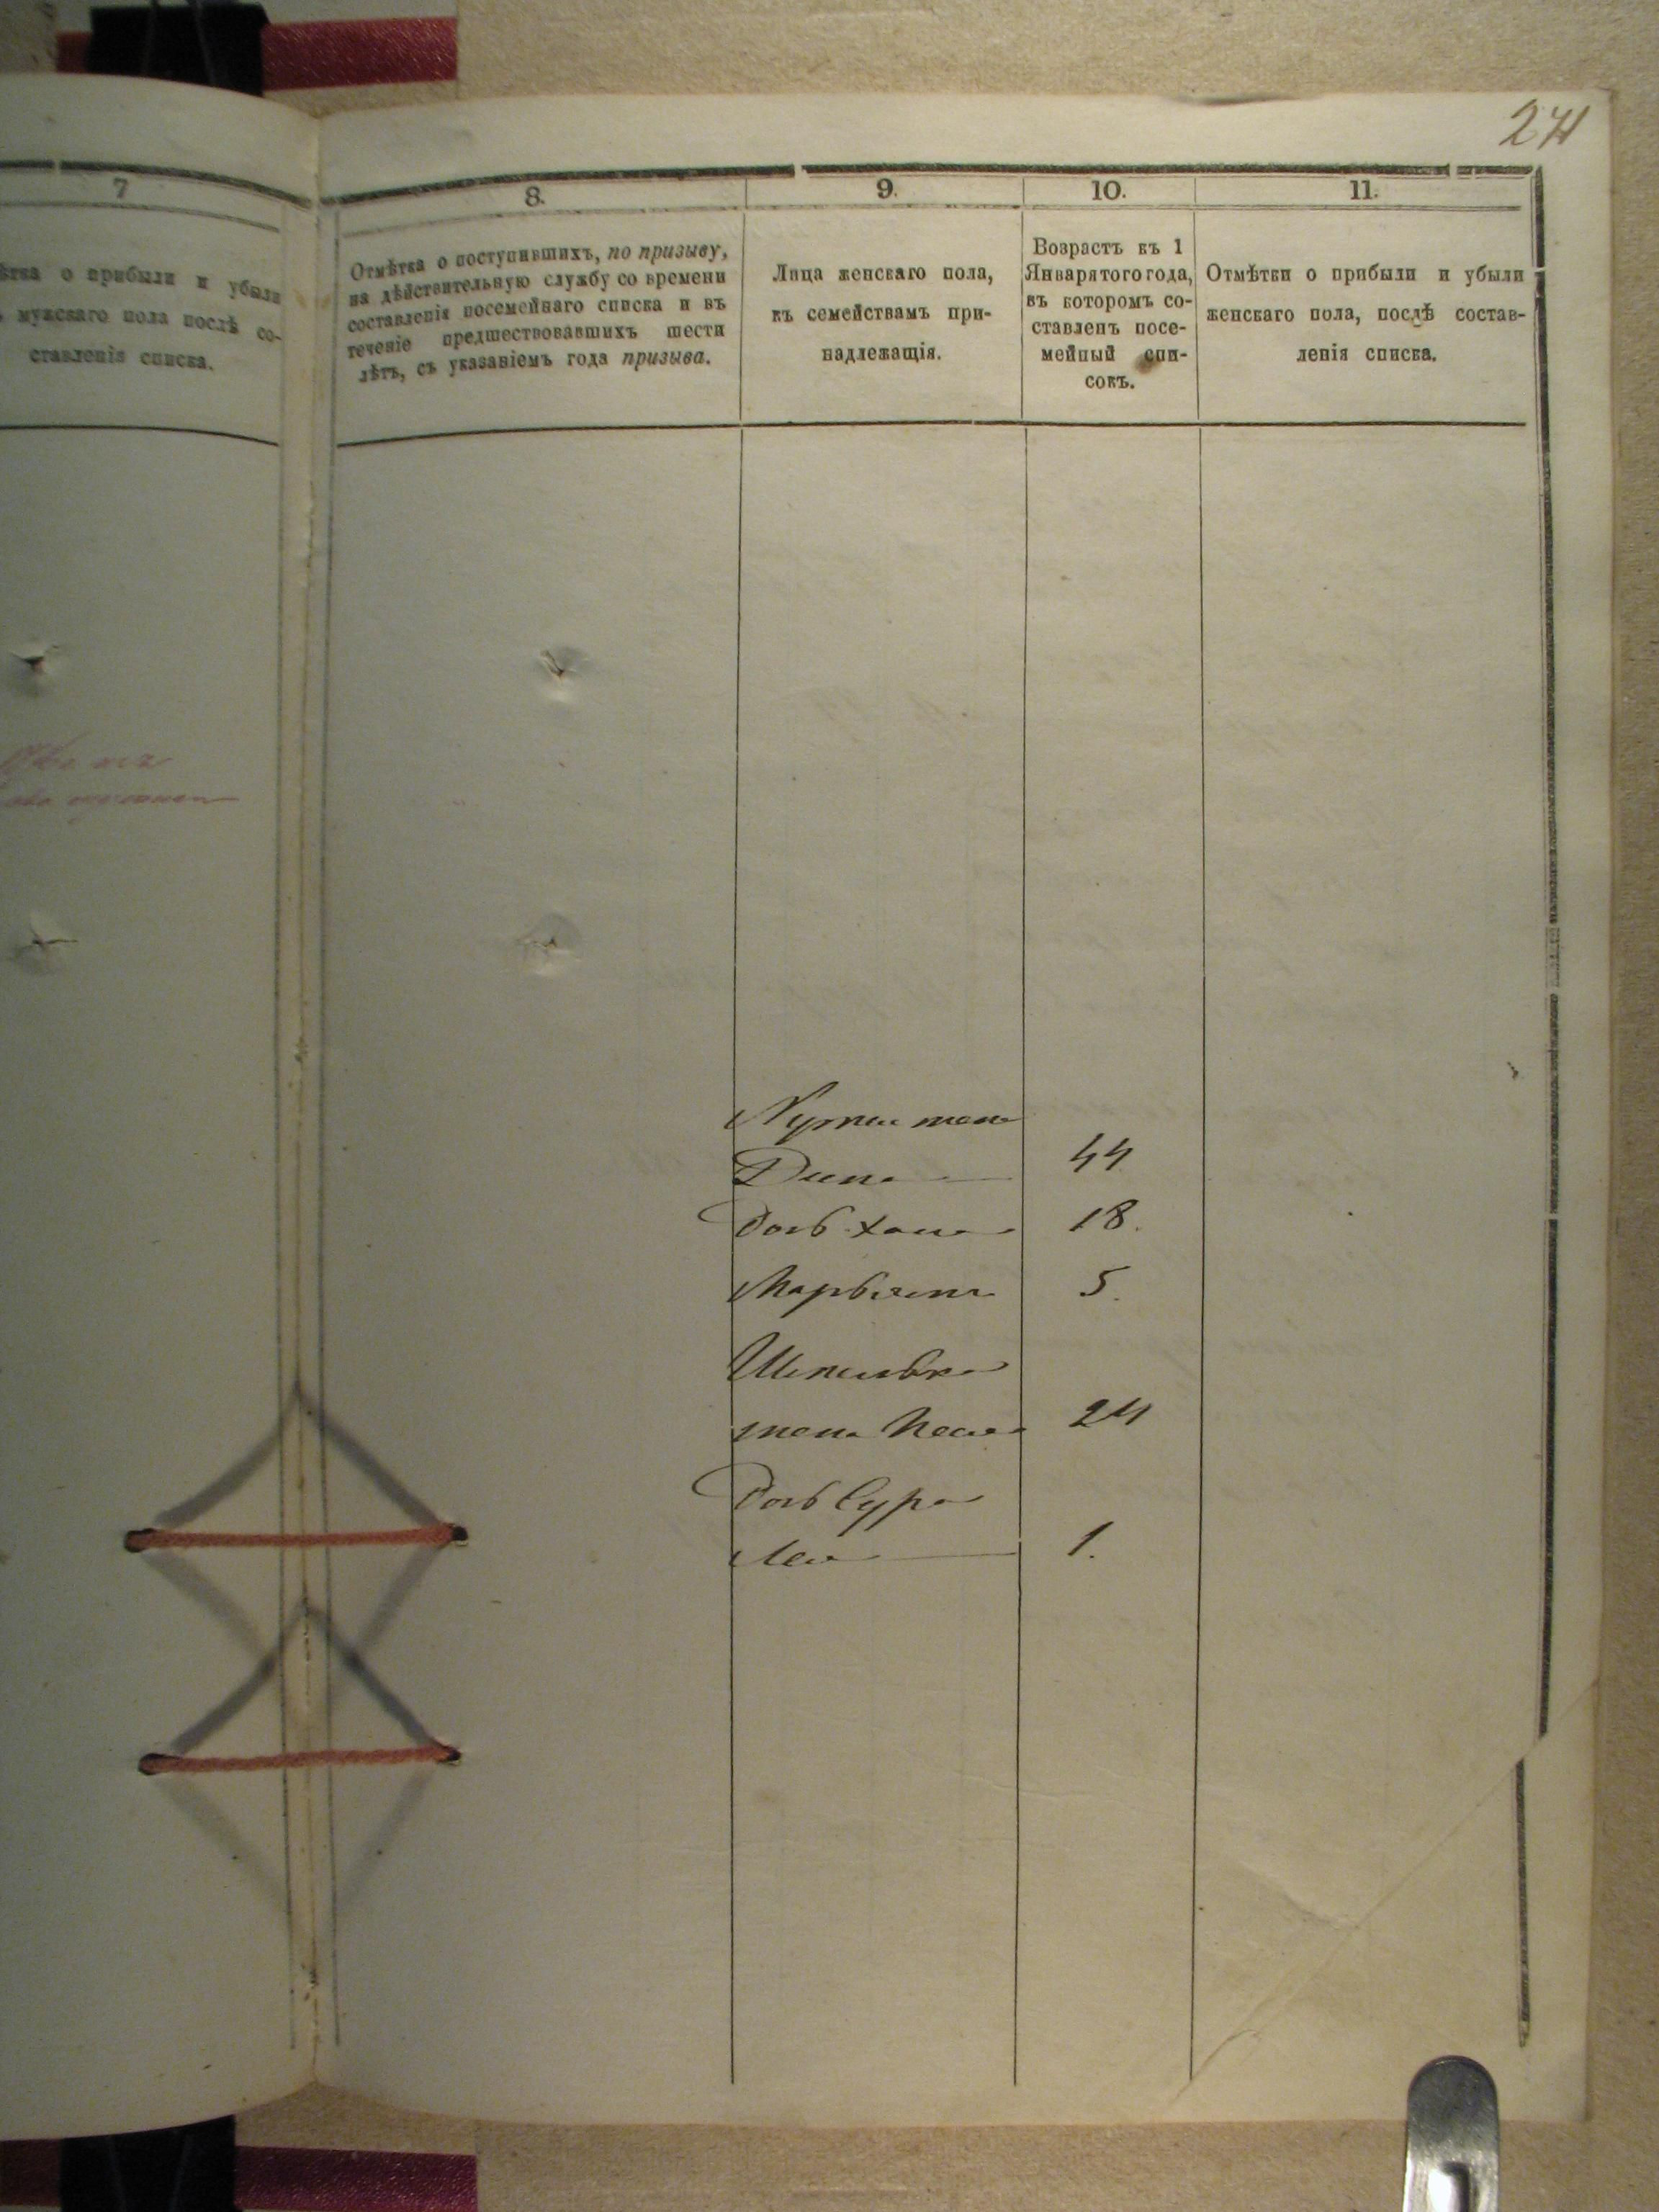 274
7
8.
9.
10.
11.
о прибыли и убыли
мужскаго пола послѣ со-
ставленія списка.
Отмѣтка о поступившихъ, по призыву,
на дѣйствительную службу со времени
составленія посемейнаго списка и въ
теченіе предшествовавшихъ шести
лѣтъ, съ указаніемъ года призыва.
Лица женскаго пола,
къ семействамъ при-
надлежащія.
Возрастъ къ 1
Января того года,
въ которомъ со-
ставленъ посе-
мейный спи-
сокъ.
Отмѣтки о прибыли и убыли
женскаго пола, послѣ состав-
ленія списка.
жена
Дина 44
дочь Хана 18.
Марьяна 5.
жена Песя 24
дочь Сура
Лея 1.